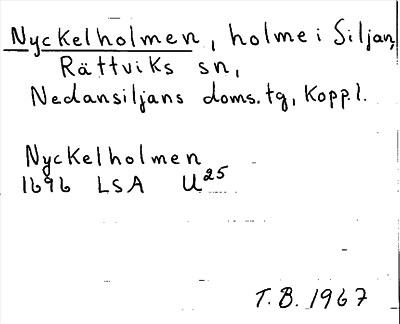 Nyckelholmen, holme i Siljan,
Rättviks sn,
Nedansiljans doms.tg, Koppl.
Nyckelholmen
1696 LSA U25
T.B. 1967